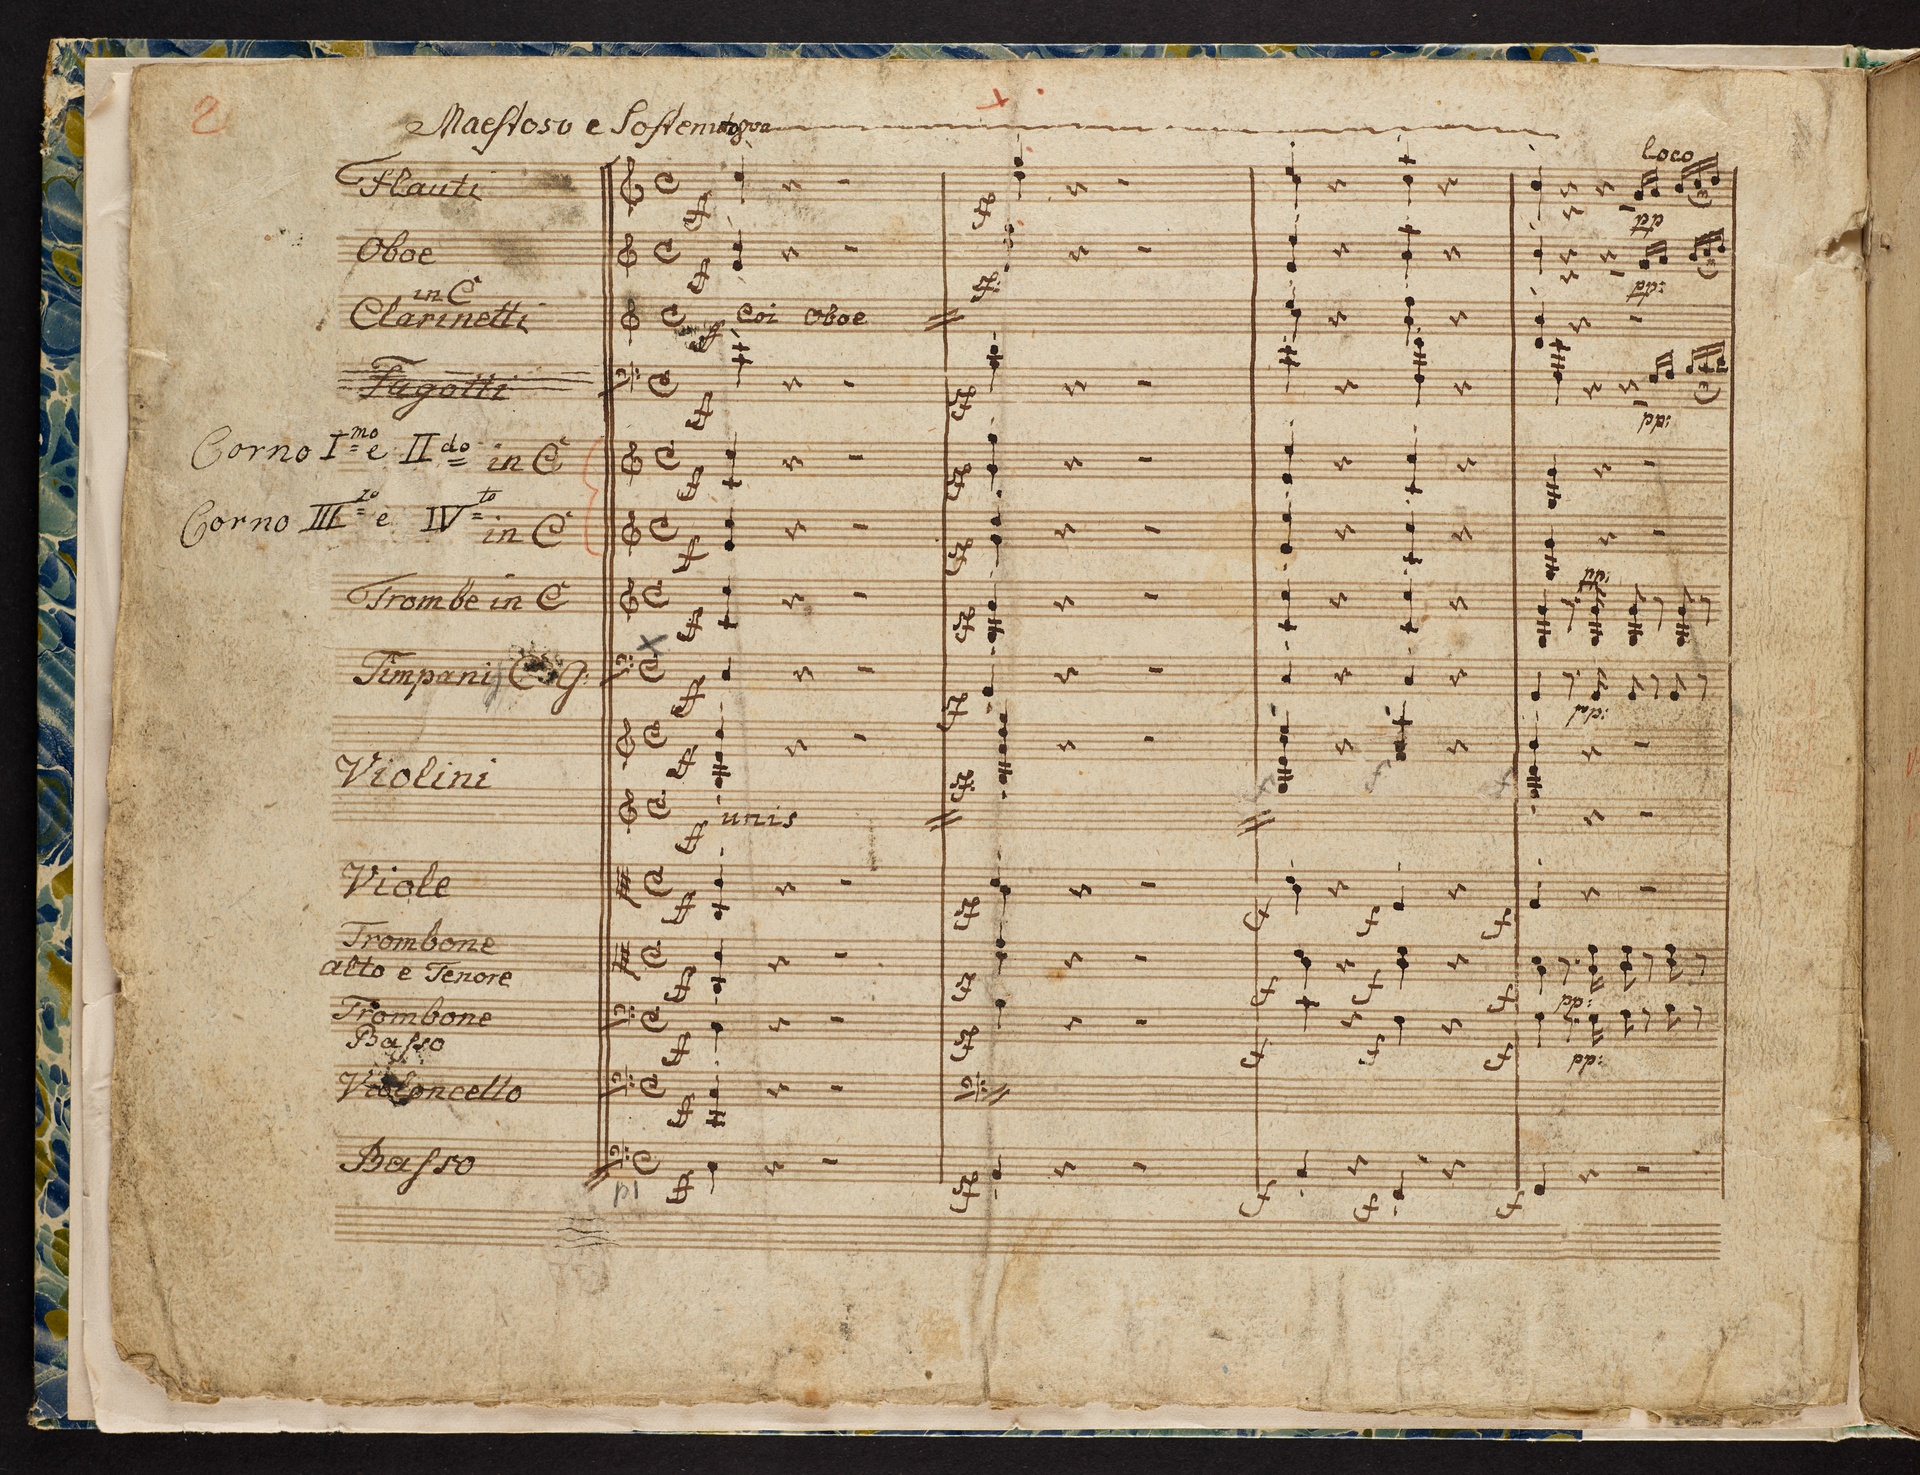 2
Maestoso e Sostenuto
loco
Flauti
Oboe
in C
Clarinetti
Coi Oboe
Fagotti
Corno I mo e II do in C
Corno III zo e IV to in C
Trombe in C
Timpani C G.
Violini
unis
Viole
Trombone
alto e Tenore
Trombone
Basso
Violoncello
Basso